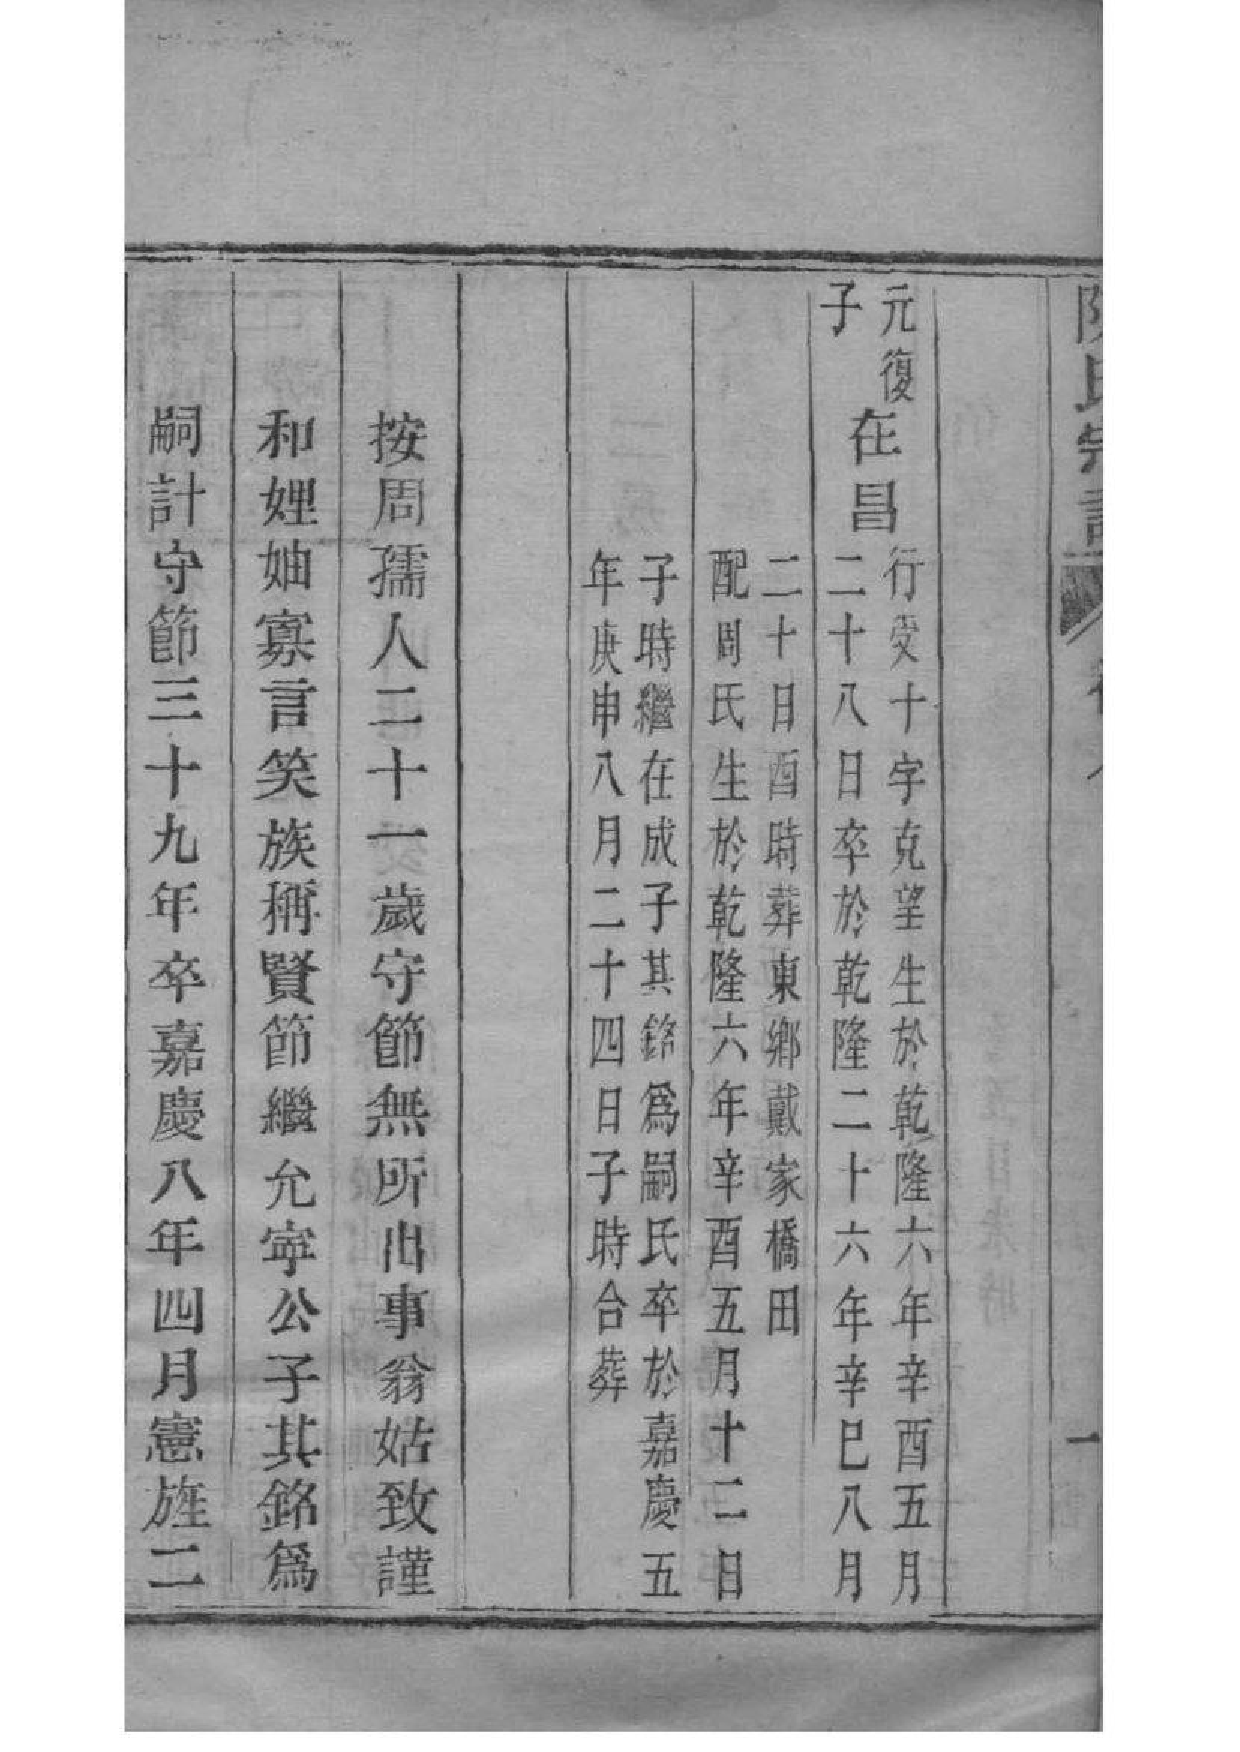 氏宗譜
元復
子
在昌
行受十字克望生於乾隆六年辛酉五月
二十八日卒於乾隆二十六年辛巳八月
二十日酉時葬東鄉戴家橋田
配周氏生於乾隆六年辛酉五月十二日
子時繼在成子其銘爲嗣氏卒於嘉慶五
年庚申八月二十四日子時合葬
按周孺人二十一歲守節無所出事翁姑致謹
和娌妯寡言笑族稱賢節繼允寧公子其銘爲
嗣計守節三十九年卒嘉慶八年四月憲旌二